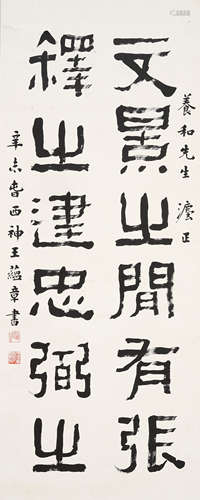 養和先生 㵀正
文景之間有張
釋之建忠弼之
辛未春西神王蘊章書